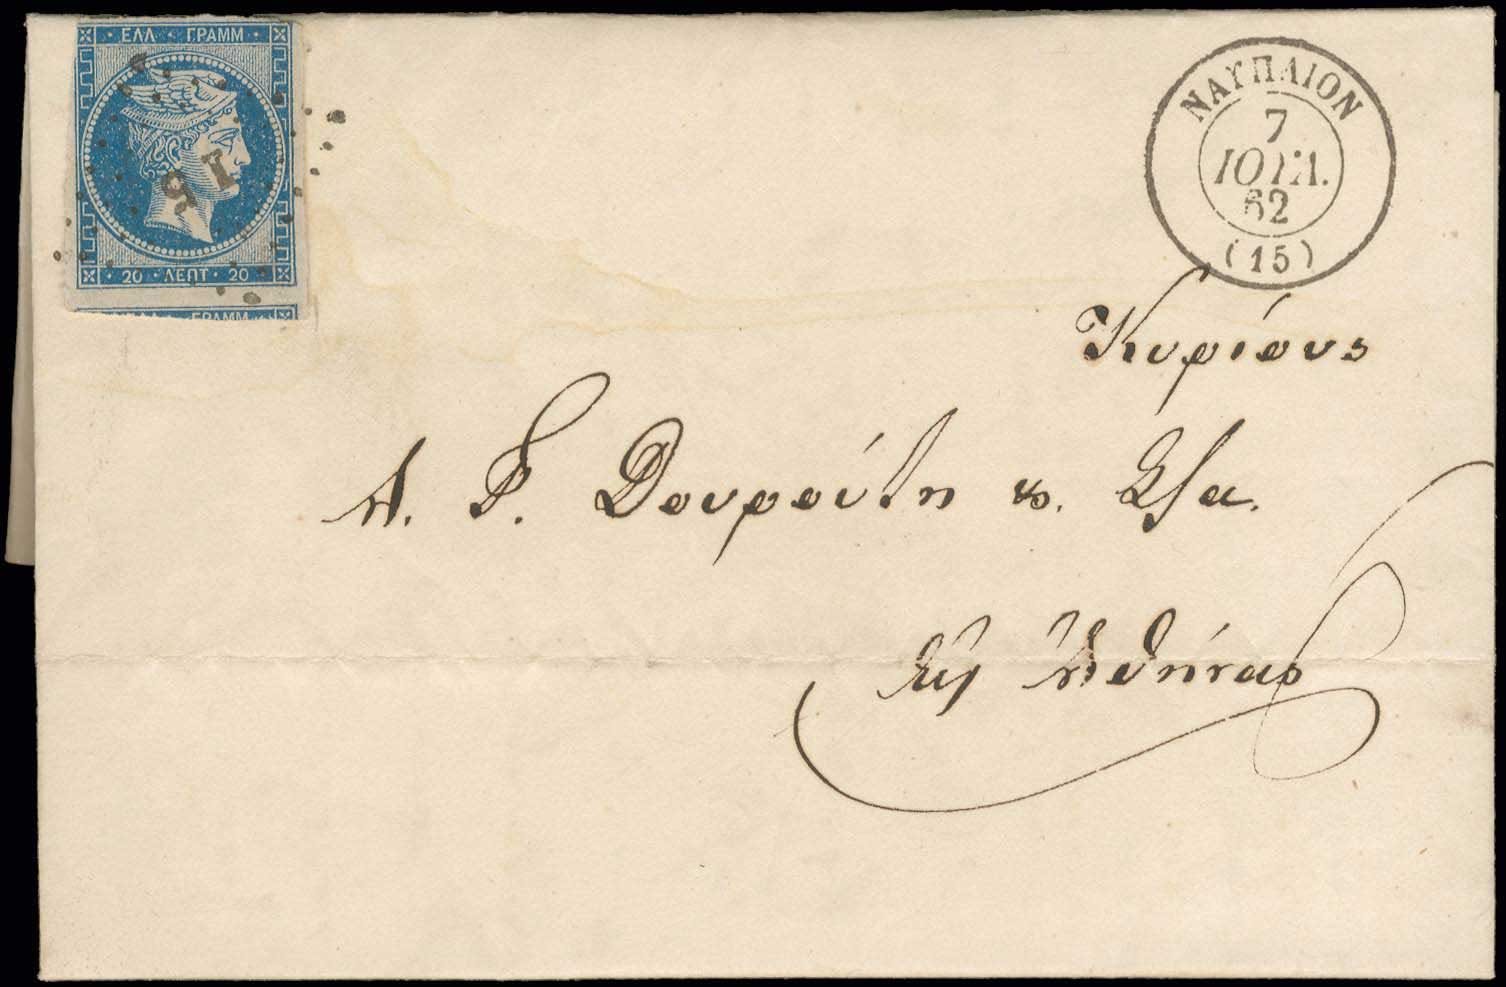 ΕΛΛ · ΓΡΑΜΜ
15
20 · ΛΕΠΤ · 20
ΓΡΑΜΜ
ΝΑΥΠΛΙΟΝ
7
ΙΟΥΛ.
62
(15)
Κυρίους
Α. Γ. Δουρούτη & Σία.
Εἰς Ἀθήνας